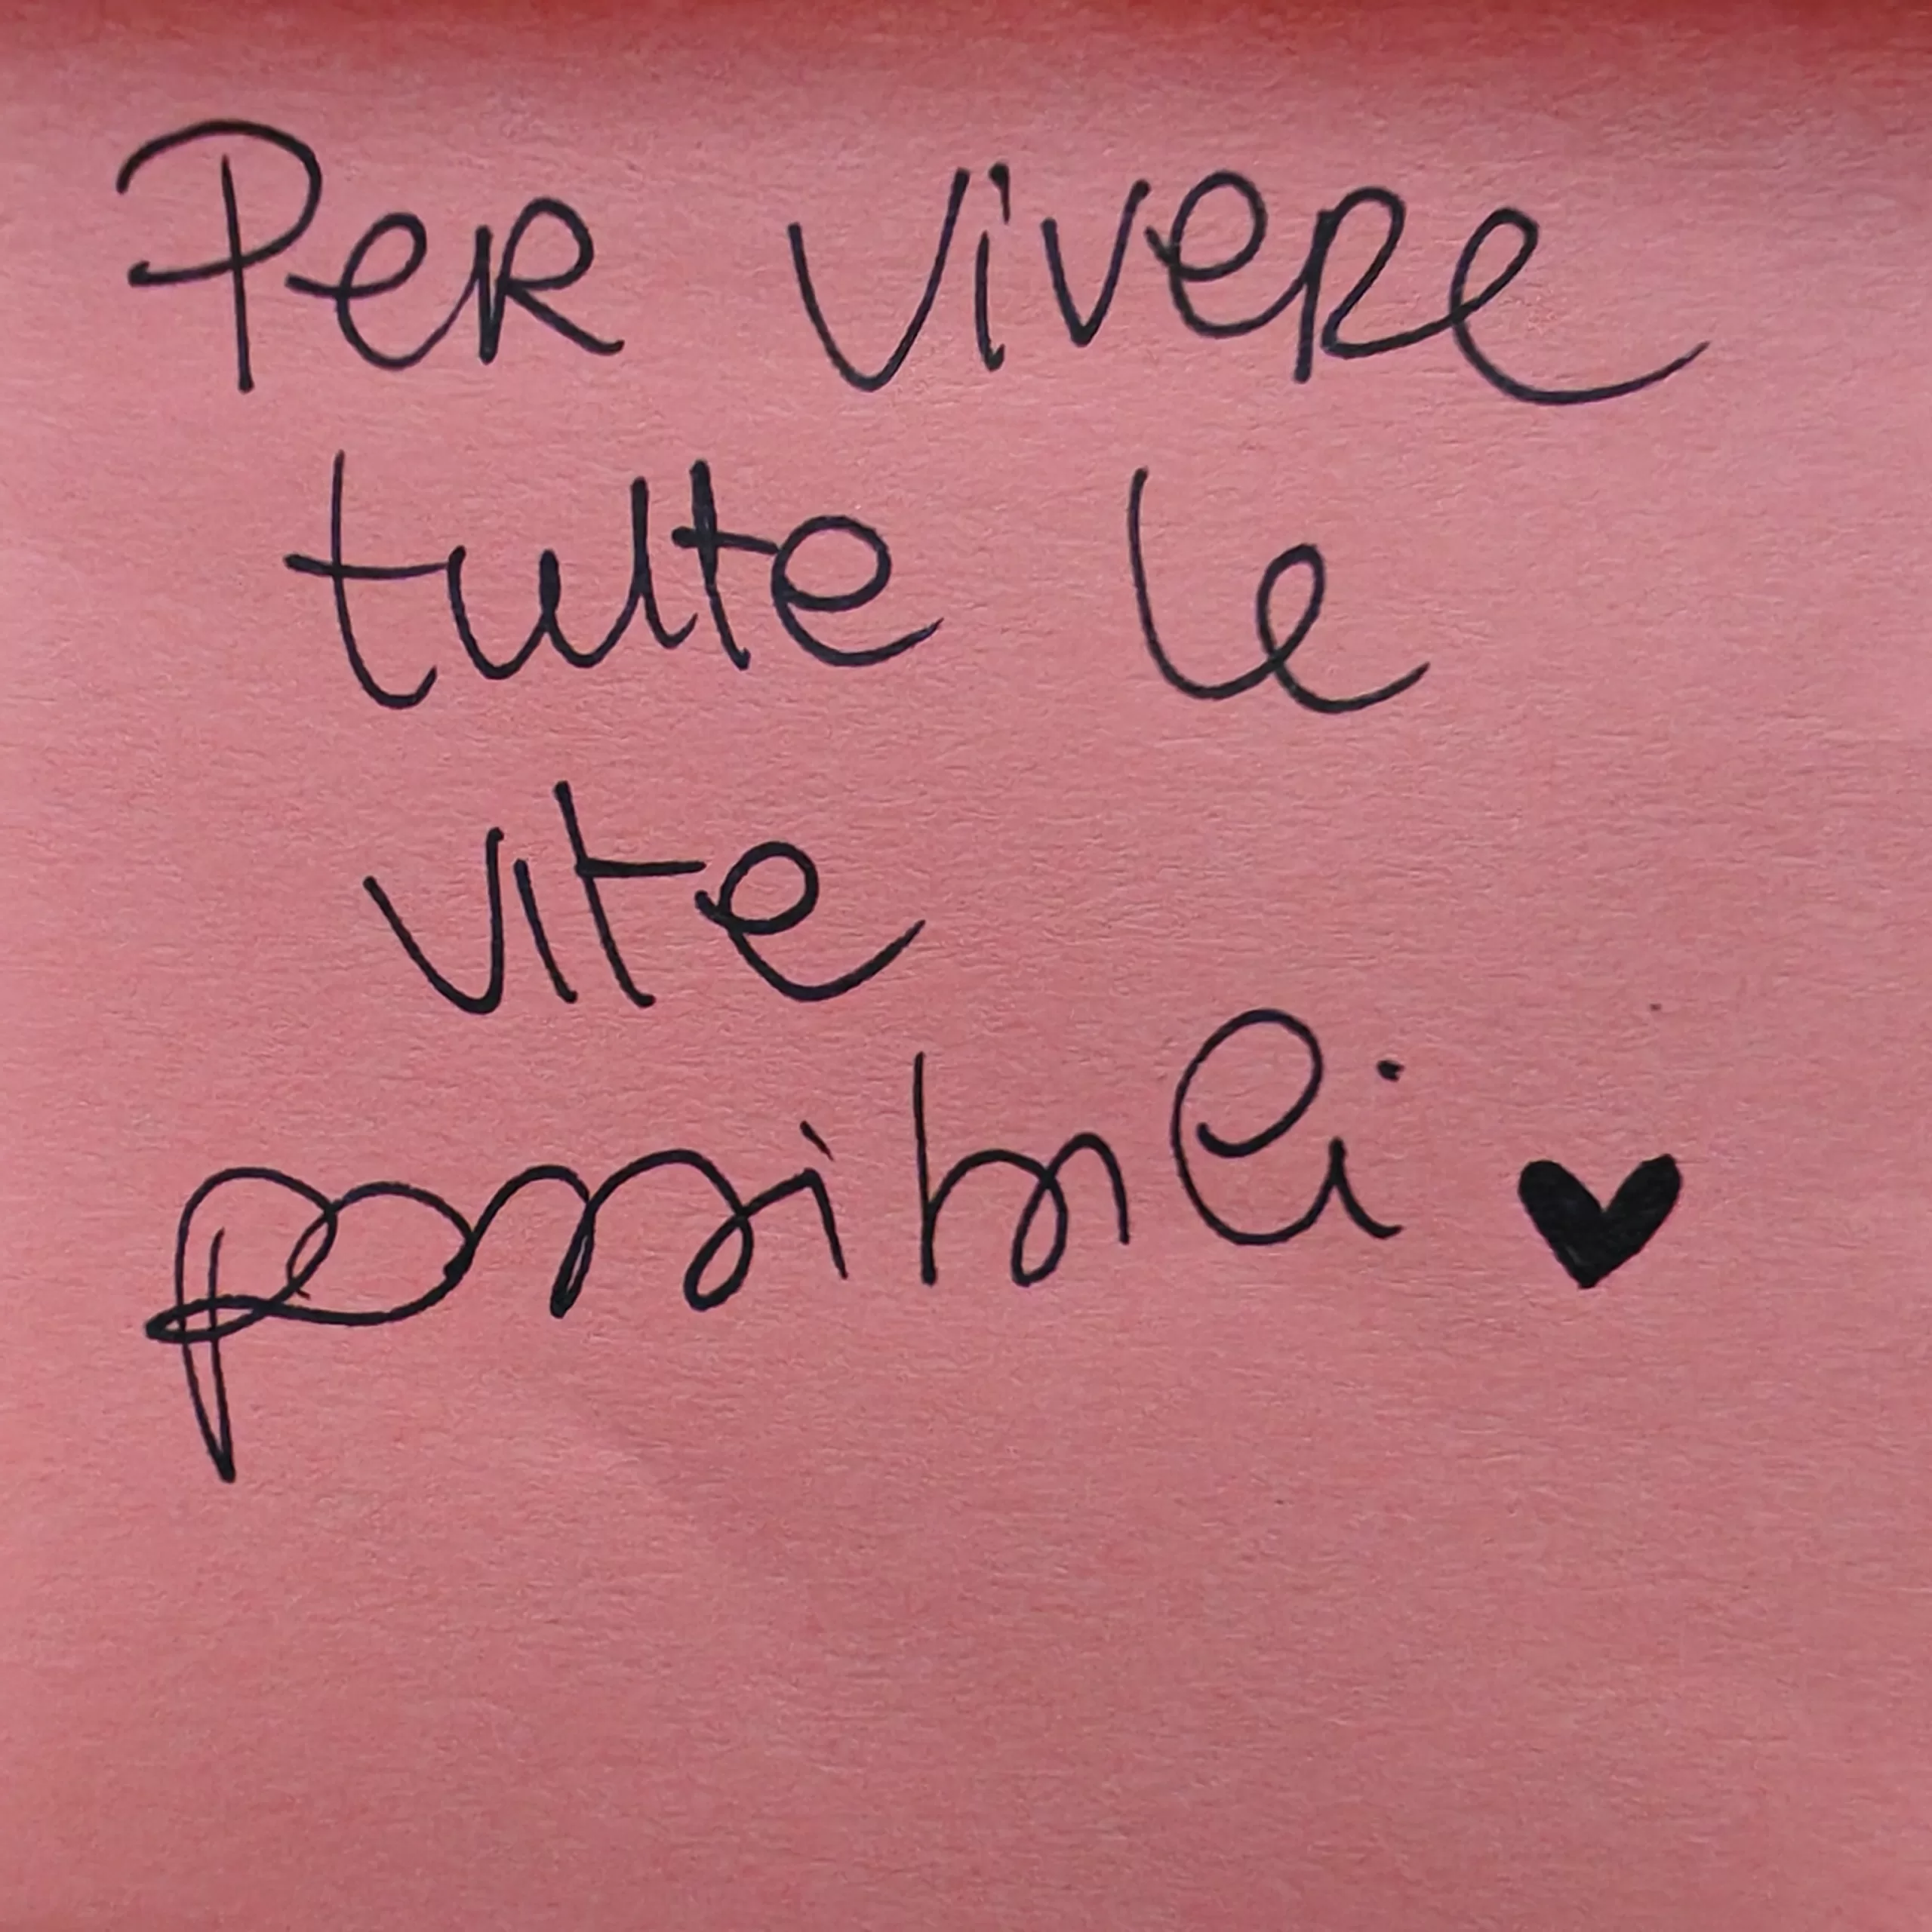 Per vivere
tutte le
vite
possibili ♥